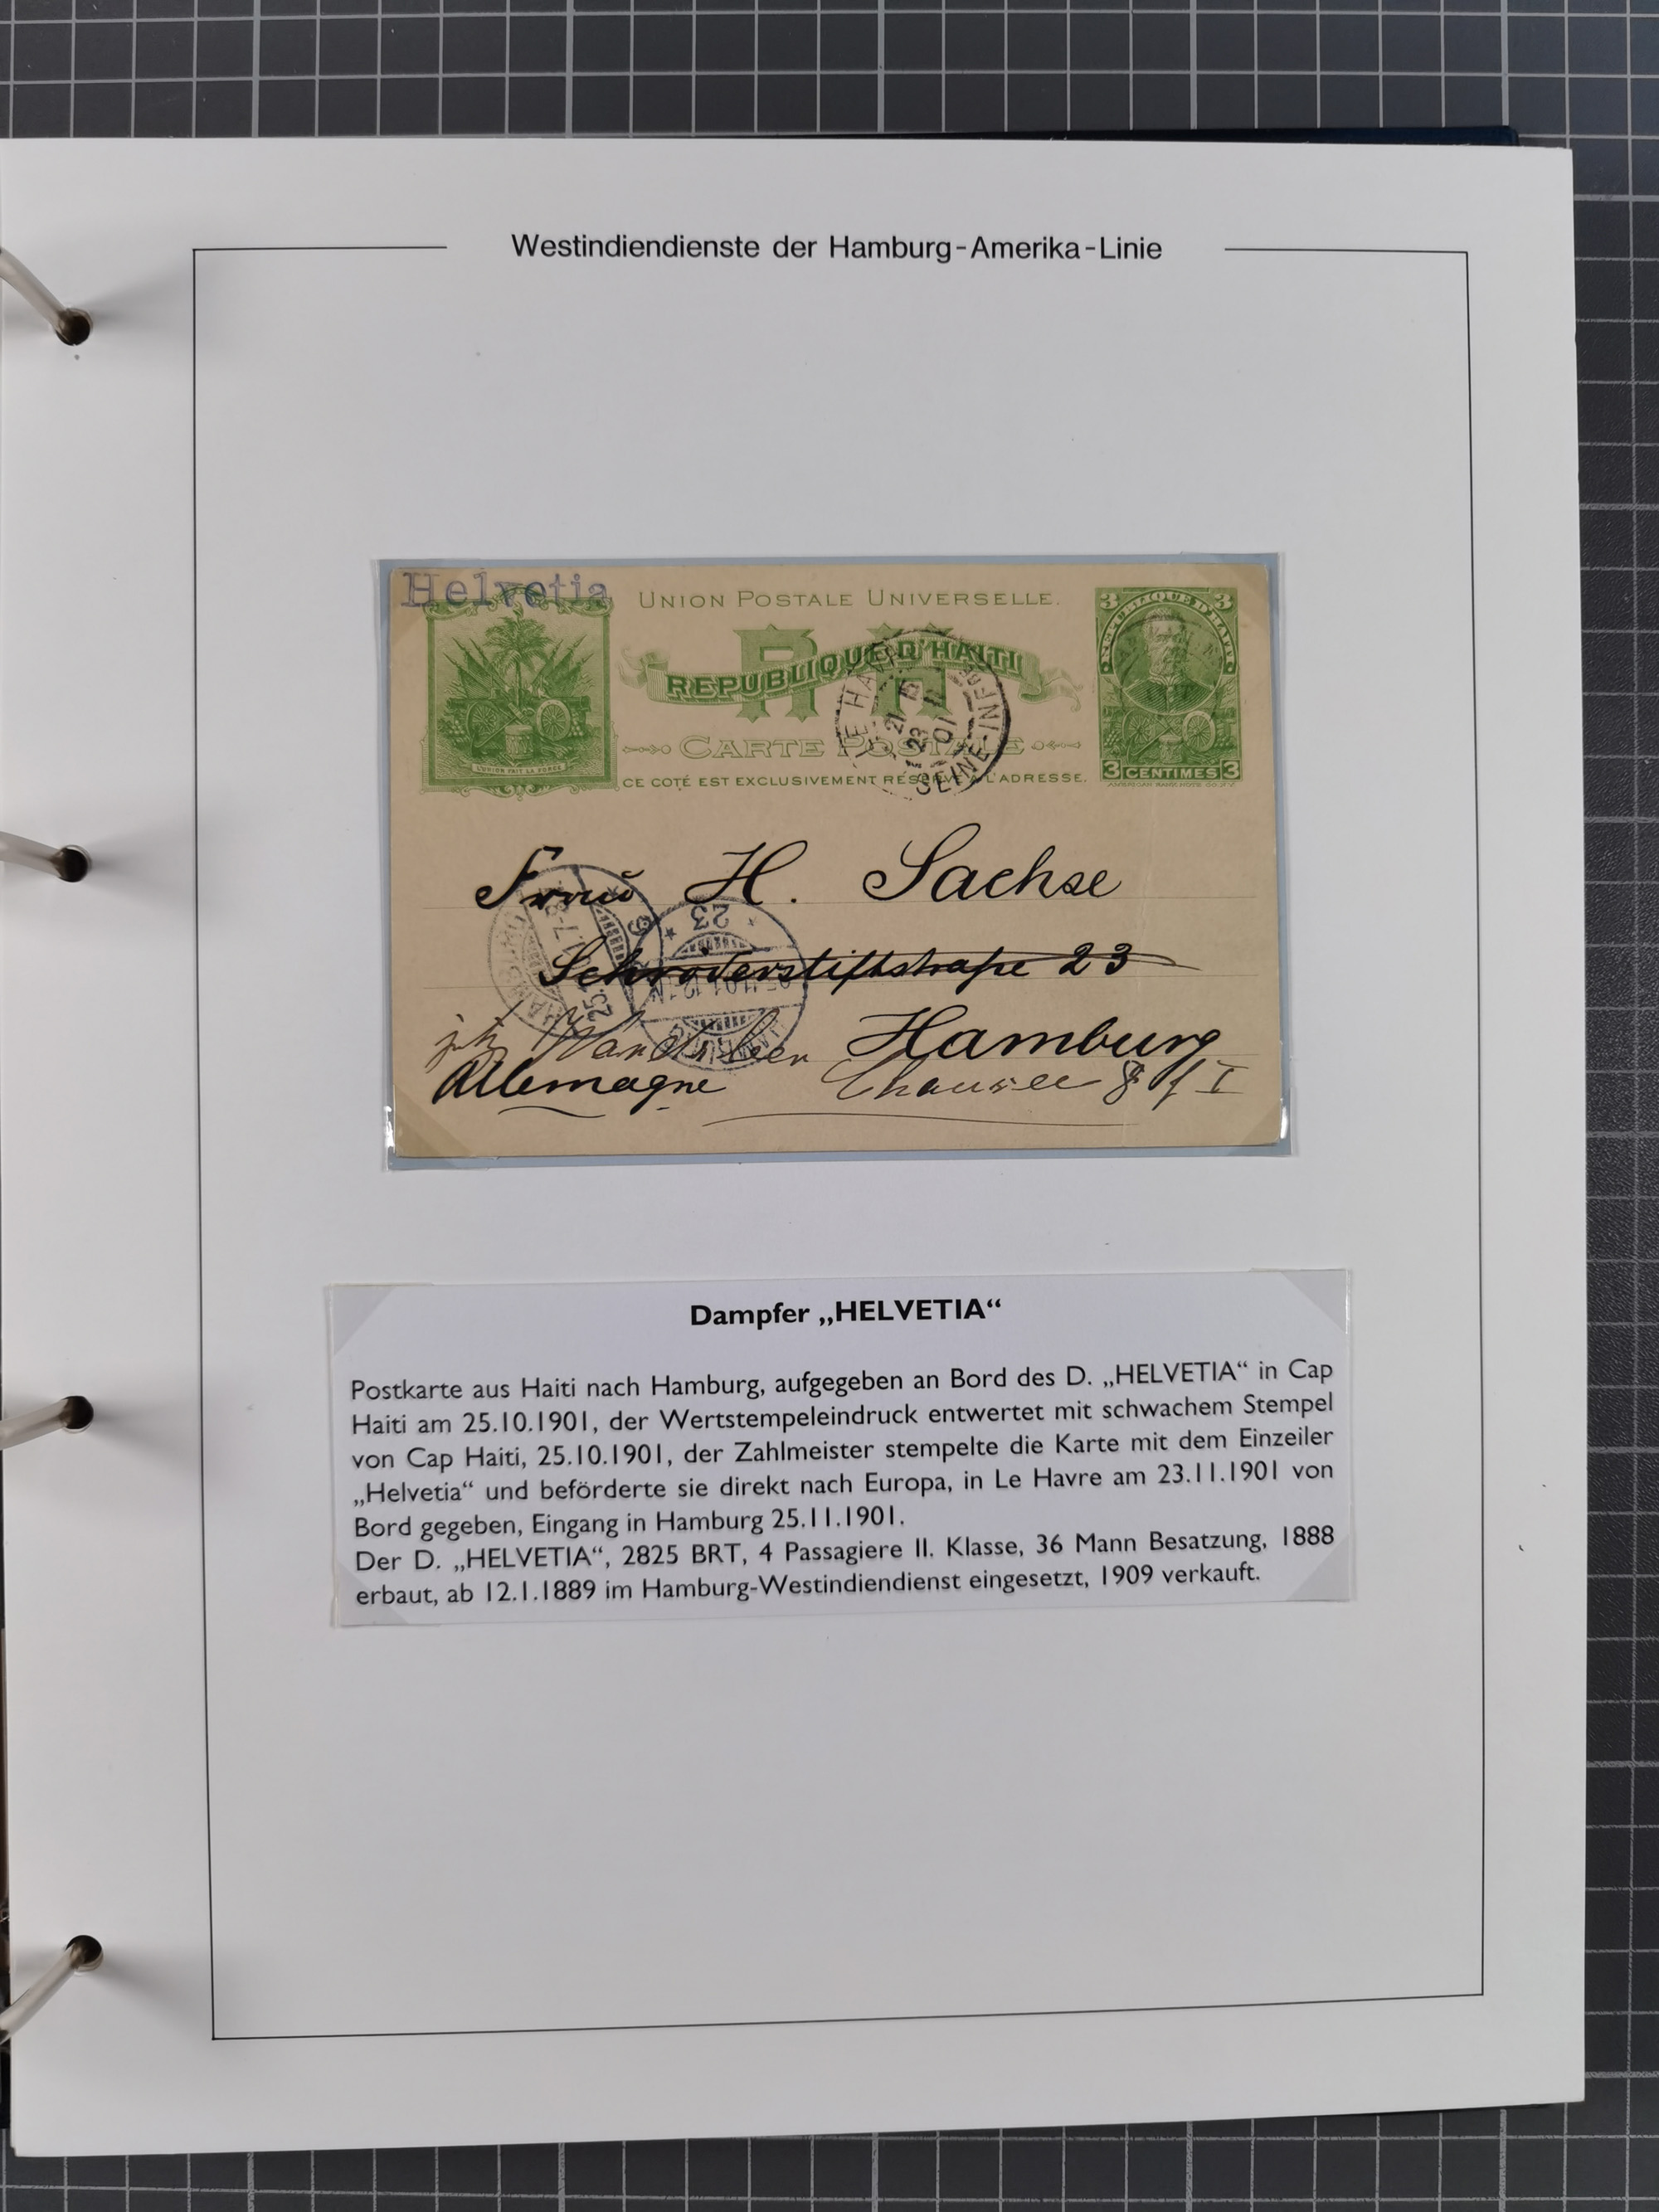 Westindiendienste der Hamburg-Amerika-Linie
Helvetia
UNION POSTALE UNIVERSELLE.
RH
REPUBLIQUE D'HAITI
CARTE POSTALE
CE COTÉ EST EXCLUSIVEMENT RÉSERVÉ À L'ADRESSE.
L'UNION FAIT LA FORCE
3 3
REPUBLIQUE D'HAITI
3 CENTIMES 3
LE HAVRE
23
01
SEINE-INFRE
Frau H. Sachse
Schröderstiftstraße 23
Hamburg
Wandsbeker
Allemagne
Chaussee 8
HAMBURG
23
HAMBURG
Dampfer „HELVETIA“
Postkarte aus Haiti nach Hamburg, aufgegeben an Bord des D. „HELVETIA“ in Cap
Haiti am 25.10.1901, der Wertstempeleindruck entwertet mit schwachem Stempel
von Cap Haiti, 25.10.1901, der Zahlmeister stempelte die Karte mit dem Einzeiler
„Helvetia“ und beförderte sie direkt nach Europa, in Le Havre am 23.11.1901 von
Bord gegeben, Eingang in Hamburg 25.11.1901.
Der D. „HELVETIA“, 2825 BRT, 4 Passagiere II. Klasse, 36 Mann Besatzung, 1888
erbaut, ab 12.1.1889 im Hamburg-Westindiendienst eingesetzt, 1909 verkauft.